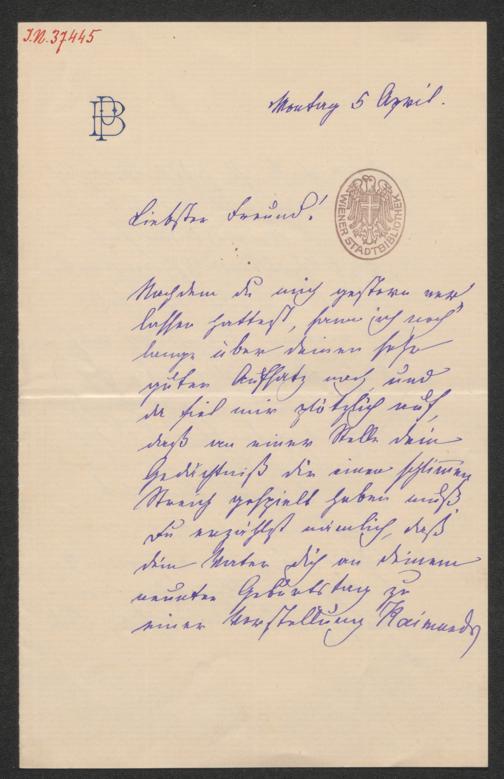 I.N. 37445
PB
Montag 5 April.
WIENER STADTBIBLIOTHEK
Liebster Freund!
Nachdem du mich gestern ver-
lassen hattest, sann ich noch
lange über deinen sehr
guten Aufsatz nach, und
da fiel mir plötzlich auf,
daß an einer Stelle dein
Gedächtniß dir einen schlimmen
Streich gespielt haben muß.
Du erzählst nämlich, daß
dein Vater dich an deinem
neunten Geburtstag zu
einer Vorstellung Raimunds